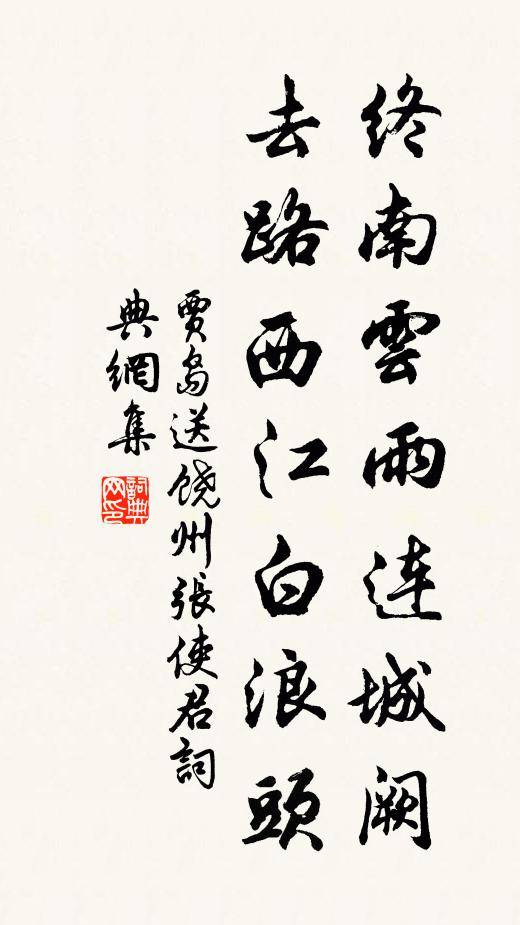 終南雲雨連城闕
去路西江白浪頭
賈島送饒州張使君詞
典網集
詞典
网印